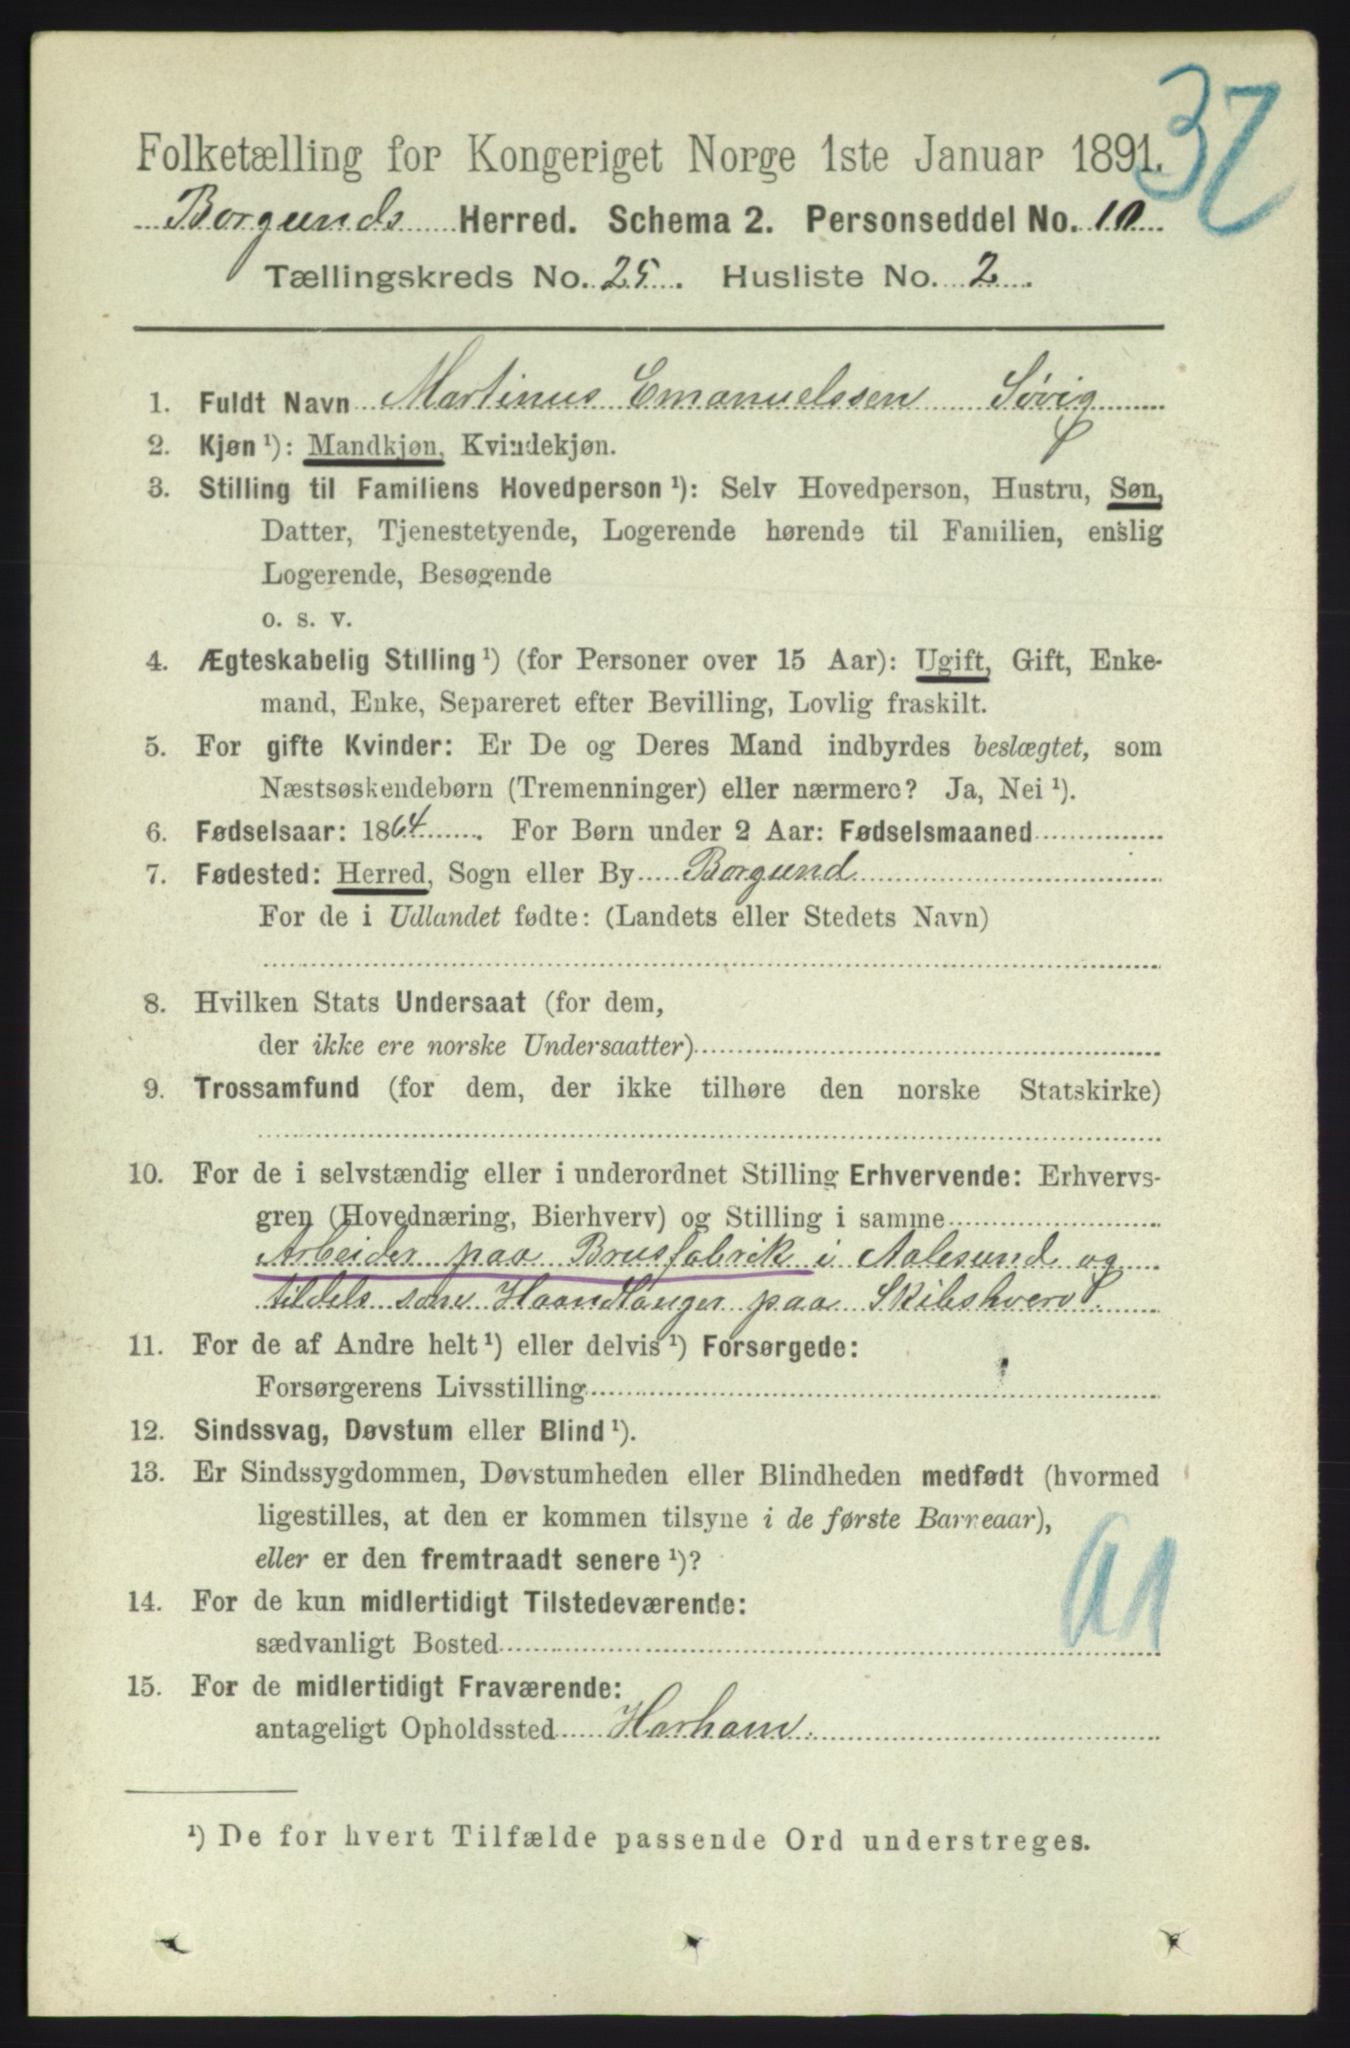 32
Folketælling for Kongeriget Norge 1ste Januar 1891.
Borgunds Herred. Schema 2. Personseddel No. 10
Tællingskreds No. 25. Husliste No. 2.
1. Fuldt Navn Martinus Emanuelssen Søvig
2. Kjøn ¹): Mandkjøn, Kvindekjøn.
3. Stilling til Familiens Hovedperson ¹): Selv Hovedperson, Hustru, Søn,
Datter, Tjenestetyende, Logerende hørende til Familien, enslig
Logerende, Besøgende
o. s. v.
4. Ægteskabelig Stilling ¹) (for Personer over 15 Aar): Ugift, Gift, Enke-
mand, Enke, Separeret efter Bevilling, Lovlig fraskilt.
5. For gifte Kvinder: Er De og Deres Mand indbyrdes beslægtet, som
Næstsøskendebørn (Tremenninger) eller nærmere? Ja, Nei ¹).
6. Fødselsaar: 1864. For Børn under 2 Aar: Fødselsmaaned
7. Fødested: Herred, Sogn eller By Borgund
For de i Udlandet fødte: (Landets eller Stedets Navn)
8. Hvilken Stats Undersaat (for dem,
der ikke ere norske Undersaatter)
9. Trossamfund (for dem, der ikke tilhøre den norske Statskirke)
10. For de i selvstændig eller i underordnet Stilling Erhvervende: Erhvervs-
gren (Hovednæring, Bierhverv) og Stilling i samme
Arbeider paa Brusfabrik i Aalesund og
tildels som Haandlanger paa Skibshverv.
11. For de af Andre helt ¹) eller delvis ¹) Forsørgede:
Forsørgerens Livsstilling
12. Sindssvag, Døvstum eller Blind ¹).
13. Er Sindssygdommen, Døvstumheden eller Blindheden medfødt (hvormed
ligestilles, at den er kommen tilsyne i de første Barneaar),
eller er den fremtraadt senere ¹)?
14. For de kun midlertidigt Tilstedeværende:
sædvanligt Bosted
15. For de midlertidigt Fraværende:
antageligt Opholdssted Harham.
¹) De for hvert Tilfælde passende Ord understreges.